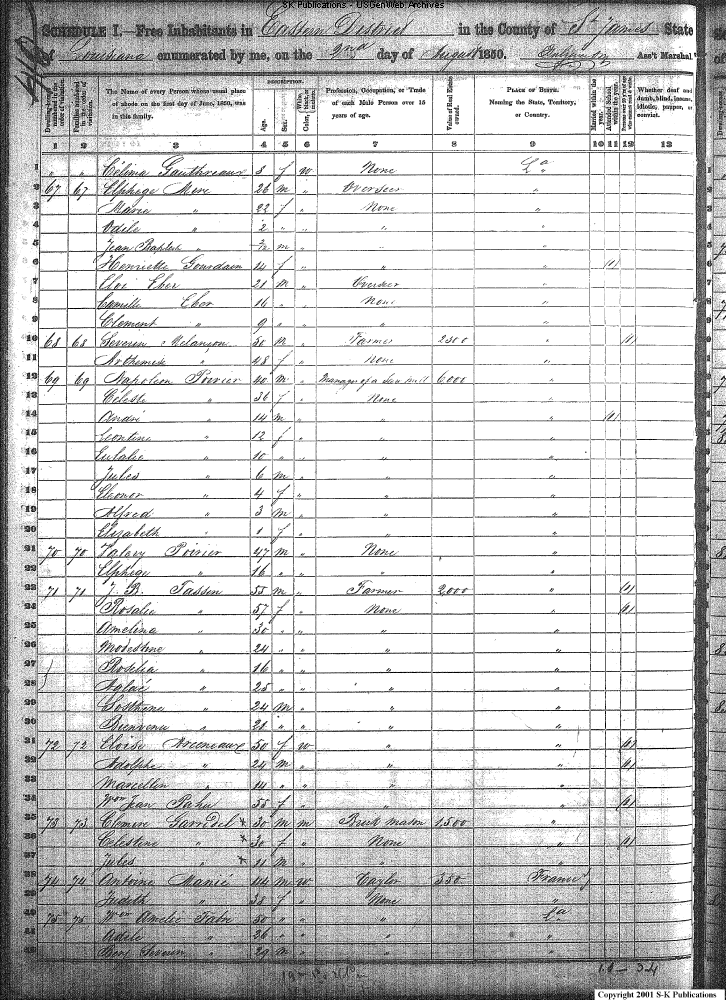 S-K Publications - USGenWeb Archives
SCHEDULE I.—Free Inhabitants in Eastern District in the County of St James State
of Louisiana enumerated by me, on the 2nd day of August 1850. Ass't Marshal
Dwelling-houses numbered in the order of visitation.
Families numbered in the order of visitation.
The Name of every Person whose usual place of abode on the first day of June, 1850, was in this family.
DESCRIPTION.
Age.
Sex.
Color, White, black, or mulatto.
Profession, Occupation, or Trade of each Male Person over 15 years of age.
Value of Real Estate owned.
PLACE OF BIRTH. Naming the State, Territory, or Country.
Married within the year.
Attended School within the year.
Whether deaf and dumb, blind, insane, idiotic, pauper, or convict.
1 2 3 4 5 6 7 8 9 10 11 12 13
1 " " Célima Gauthreaux 3 f w None La
2 67 67 Elphege Mere 26 m " Overseer "
3 Marie " 22 f " None "
4 Odile " 2 " " " "
5 Jean Baptiste " m " " "
6 Henriette Gourdain 14 f " " " 1
7 Eloi Eber 21 m " Overseer "
8 Camille Eber 16 " " None "
9 Clement " 9 " " " "
10 68 68 Severin Melançon 50 m " Farmer 2500 " 1
11 Arthemise " 48 f " None "
12 69 69 Napoleon Poirier 40 m " Manager of a Saw mill 6000 "
13 Céleste " 36 f " None "
14 André " 14 m " " " 1
15 Leontine " 12 f " " "
16 Eulalie " 10 " " " "
17 Jules " 6 m " " "
18 Eleonor " 4 f " " "
19 Alfred " 3 m " " "
20 Elizabeth " 1 f " " "
21 70 70 Valery Poirier 47 m " None "
22 Elphege " 16 " " " "
23 71 71 J. B. Tassin 55 m " Farmer 2000 " 1
24 Rosalie " 57 f " None " 1
25 Amelina " 30 " " " "
26 " 24 " " " "
27 Rosélia " 16 " " " "
28 Aglaé " 25 " " " "
29 Sosthene " 24 m " " "
30 Bienvenu " 21 " " " "
31 72 72 Eloise Arceneaux 50 f w " " 1
32 Adolphe " 24 m " " " 1
33 Marcellin " 14 " " " "
34 Wm Jean 55 f " " " 1
35 73 73 Garridel * 30 m m Brick mason 1,500 "
36 Celestine " * 30 f " None " 1
37 Jules " * 11 m " " "
38 74 74 Antoine Manié 44 m w Taylor 350 France
39 Judith " 38 f " None "
40 75 75 Amelie Fabre 50 " " " La
41 Adèle " 26 " " " "
42 " 29 m " " "
Copyright 2001 S-K Publications